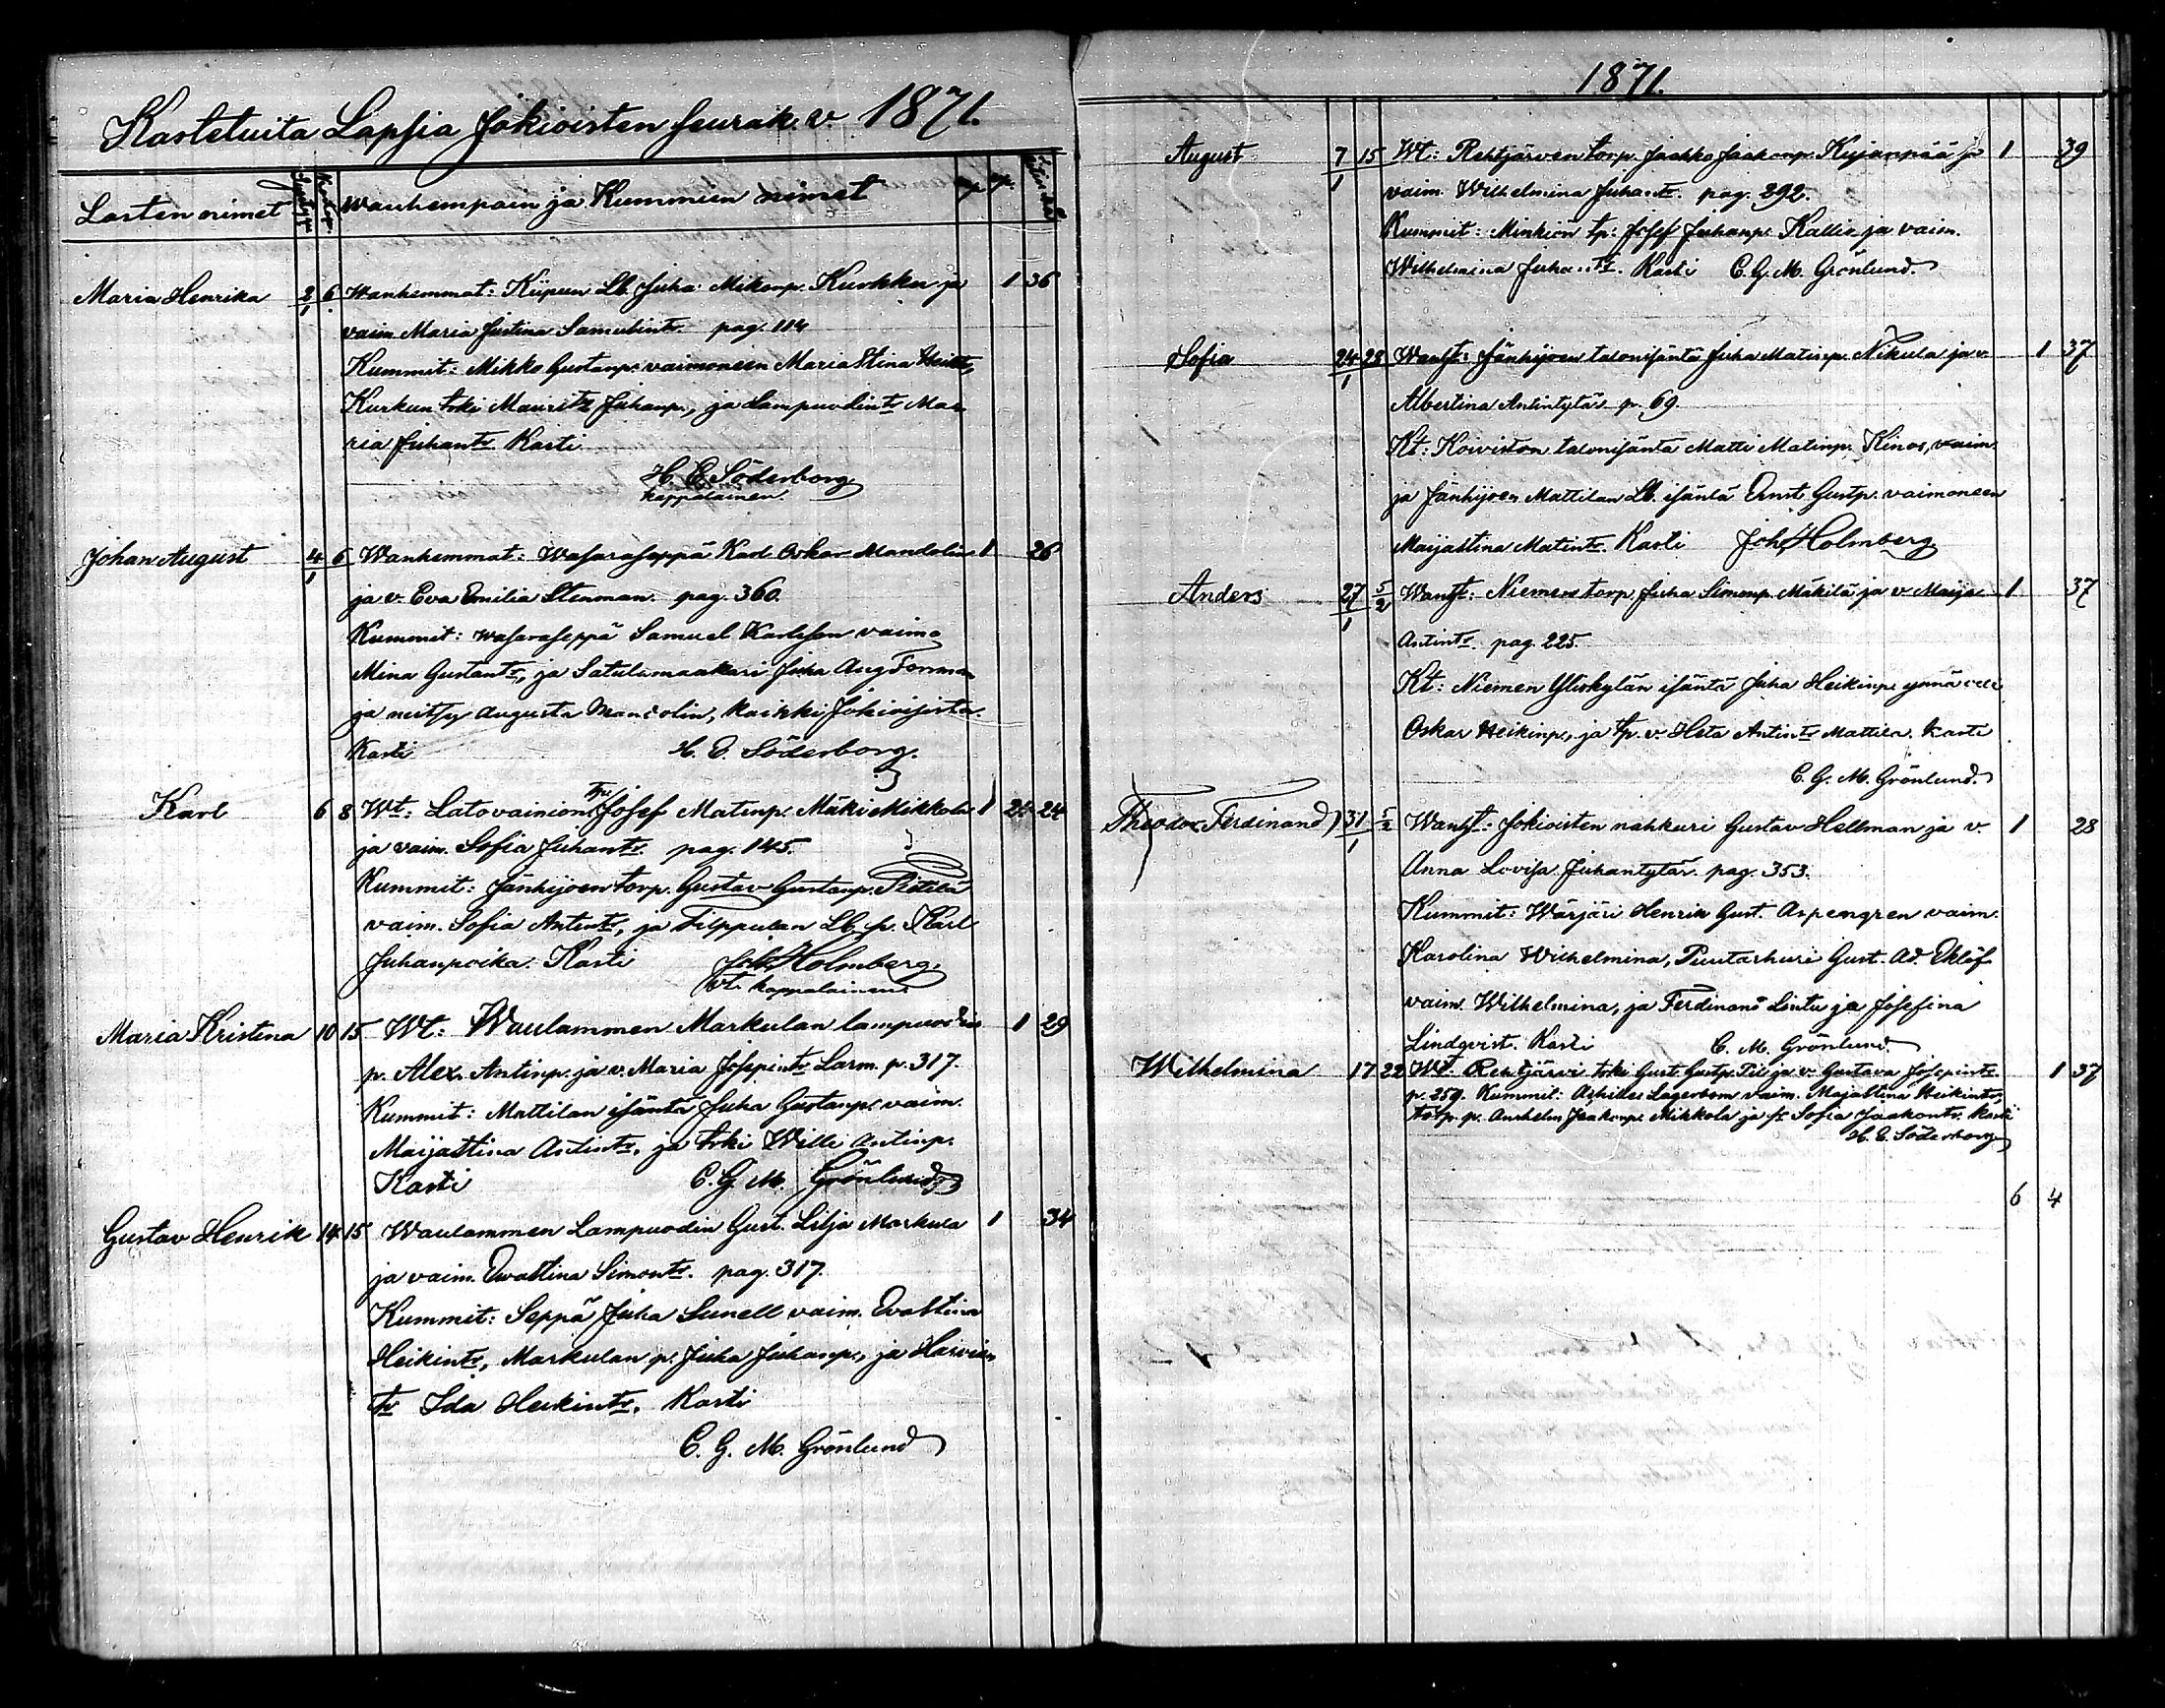 Kastetuita Lapsia Jokioisten seurak. v. 1871.
Lasten nimet Wanhempain ja Kummien nimet
Maria Henrika 2/1 6 Wanhemmat: Kiipun Lb. Juha Mikonp. Kurkku ja 1 36
vaim. Maria Justina Samulintr. pag. 114
Kummit: Mikko Gustanp. vaimoneen Maria Stina
Kurkun trki Mauritz Juhanp., ja Lampuodintr Ma-
ria Juhantr. Kasti
H. E. Söderborg
kappalainen.
Johan August 4/1 6 Wanhemmat: Wasaraseppä Karl Oskar Mandolin 1 26
ja v. Eva Emilia Stenman. pag. 360.
Kummit: wasaraseppä Samuel Karlsson vaim.
Mina Gustantr, ja Satulamaakari Juha Aug Forsman
ja neitsy Augusta Mandolin, kaikki Jokioisista.
Kasti H. E. Söderborg.
Karl 6 8 Wt: Latovainion Tp. Josef Matinp. Mäki Mikkola 1 24
ja vaim. Sofia Juhantr. pag. 145.
Kummit: Jänhijoen torp. Gustav Gustanp. Pietilä
vaim. Sofia Antintr, ja Filppulan Lb. p. Karl
Juhanpoika. Kasti Joh. Holmberg.
vt. kappalainen.
Maria Kristina 10 15 Wt: Waulammen Markulan lampuodin 1 29
p. Alex. Antinp. ja v. Maria Josepintr Larm. p. 317.
Kummit: Mattilan isäntä Juha Gustanp. vaim.
Maijastina Antintr, ja trki Wille Antinp.
Kasti C. G. M. Grönlund
Gustav Henrik 14 15 Waulammen Lampuodin Gust. Lilja Markula 1 34
ja vaim. Evastina Simontr. pag. 317.
Kummit: Seppä Juha Sunell vaim. Evastina
Heikintr, Markulan p. Juha Juhanp., ja Harvian
tr Ida Heikintr. Kasti
C. G. M. Grönlund
1871.
August 7/1 15 Wt: Rehtjärven torp. Jaakko Jaakonp. Kujanpää ja 1 39
vaim. Wilhelmina Juhantr. pag. 292.
Kummit: Minkiön tp: Josef Juhanp. Kallio ja vaim.
Wilhelmina Juhantr. Kasti C. G. M. Grönlund.
Sofia 24/1 28 Wanht: Jänhijoen talonisäntä Juha Matinp. Nikula ja v. 1 37
Albertina Antintytär p. 69.
Kt: Koiviston talonisäntä Matti Matinp. Kinos, vaim.
ja Jänhijoen Mattilan Lb. isäntä Ernst Gustp. vaimoneen
Maijastina Matintr. Kasti Joh. Holmberg
Anders 27/1 5/2 Wanht: Niemen torp. Juha Simonp. Mäkilä ja v. Maija 1 37
Antintr. pag. 225.
Kt: Niemen Yliskylän isäntä Juha Heikinp. ynnä veli
Oskar Heikinp., ja tp. v. Heta Antintr Mattila. Kasti
C. G. M. Grönlund.
Theodor Ferdinand 31/1 5/2 Wanht: Jokioisten nahkuri Gustav Hellman ja v. 1 28
Anna Lovisa Juhantytär. pag. 353.
Kummit: Wärjäri Henrik Gust. Aspengren vaim.
Karolina Wilhelmina, Puutarhuri Gust. Ad. Eklöf
vaim. Wilhelmina, ja Ferdinand Lintu ja Josefina
Lindqvist. Kasti C. M. Grönlund.
Wilhelmina 17 22 Wt. Rehtjärvi trki Gust. Gustp. Tii ja v. Gustava Josepintr 1 37
p. 259. Kummit: Achilles Lagerbom vaim. Majastina Heikintr,
torp. p. Anshelm Jaakonp. Mikkola ja p. Sofia Jaakontr. Kasti
H. E. Söderborg
6 4